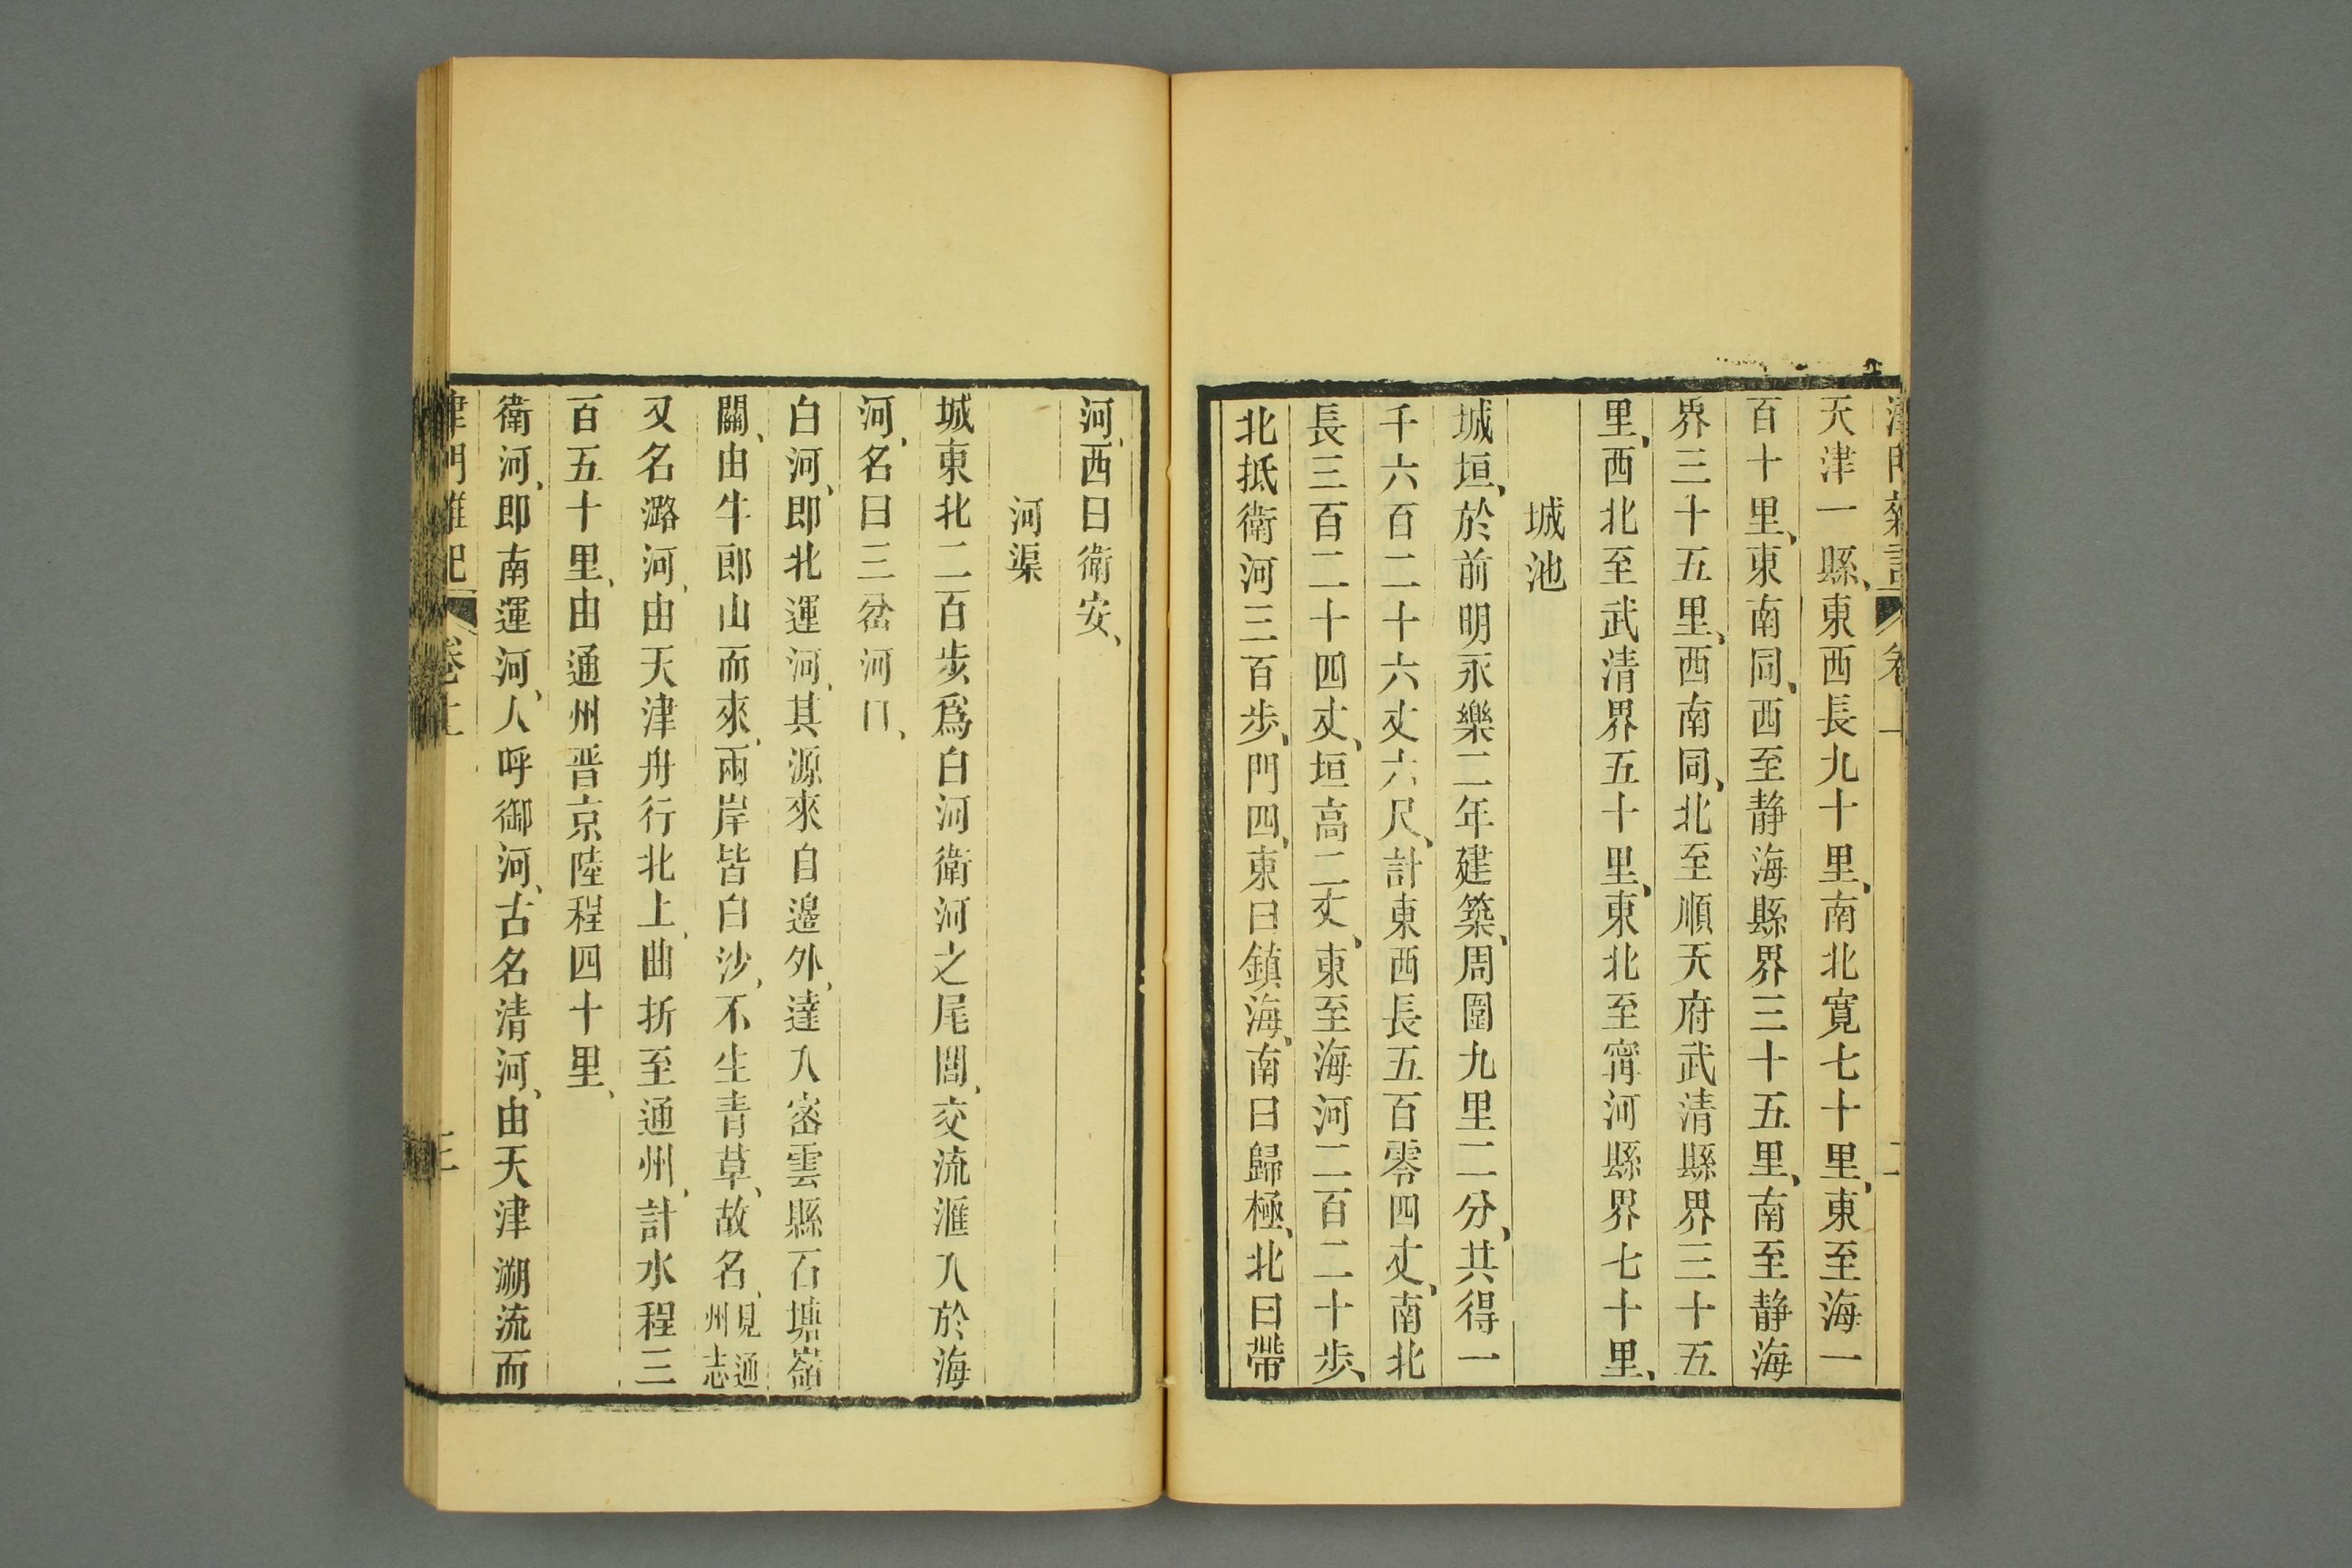 天津一縣、東西長九十里、南北寬七十里、東至海一
百十里、東南同、西至静海縣界三十五里、南至静海
界三十五里、西南同、北至順天府武清縣界三十五
里、西北至武清界五十里、東北至甯河縣界七十里、
城池
城垣、於前明永樂二年建築、周圍九里二分、共得一
千六百二十六丈六尺、計東西長五百零四丈、南北
長三百二十四丈、垣高二丈、東至海河二百二十步、
北抵衛河三百步、門四、東曰鎮海、南曰歸極、北曰帶
河、西曰衛安、
河渠
城東北二百步、爲白河衛河之尾閭、交流滙入於海
河、名曰三岔河口、
白河、即北運河、其源來自邊外、達入密雲縣石塘嶺
關、由牛郎山而來、兩岸皆白沙、不生青草、故名、見通州志
又名潞河、由天津舟行北上、曲折至通州、計水程三
百五十里、由通州晋京陸程四十里、
衛河、即南運河、人呼御河、古名清河、由天津溯流而
津門雜記 卷上 三